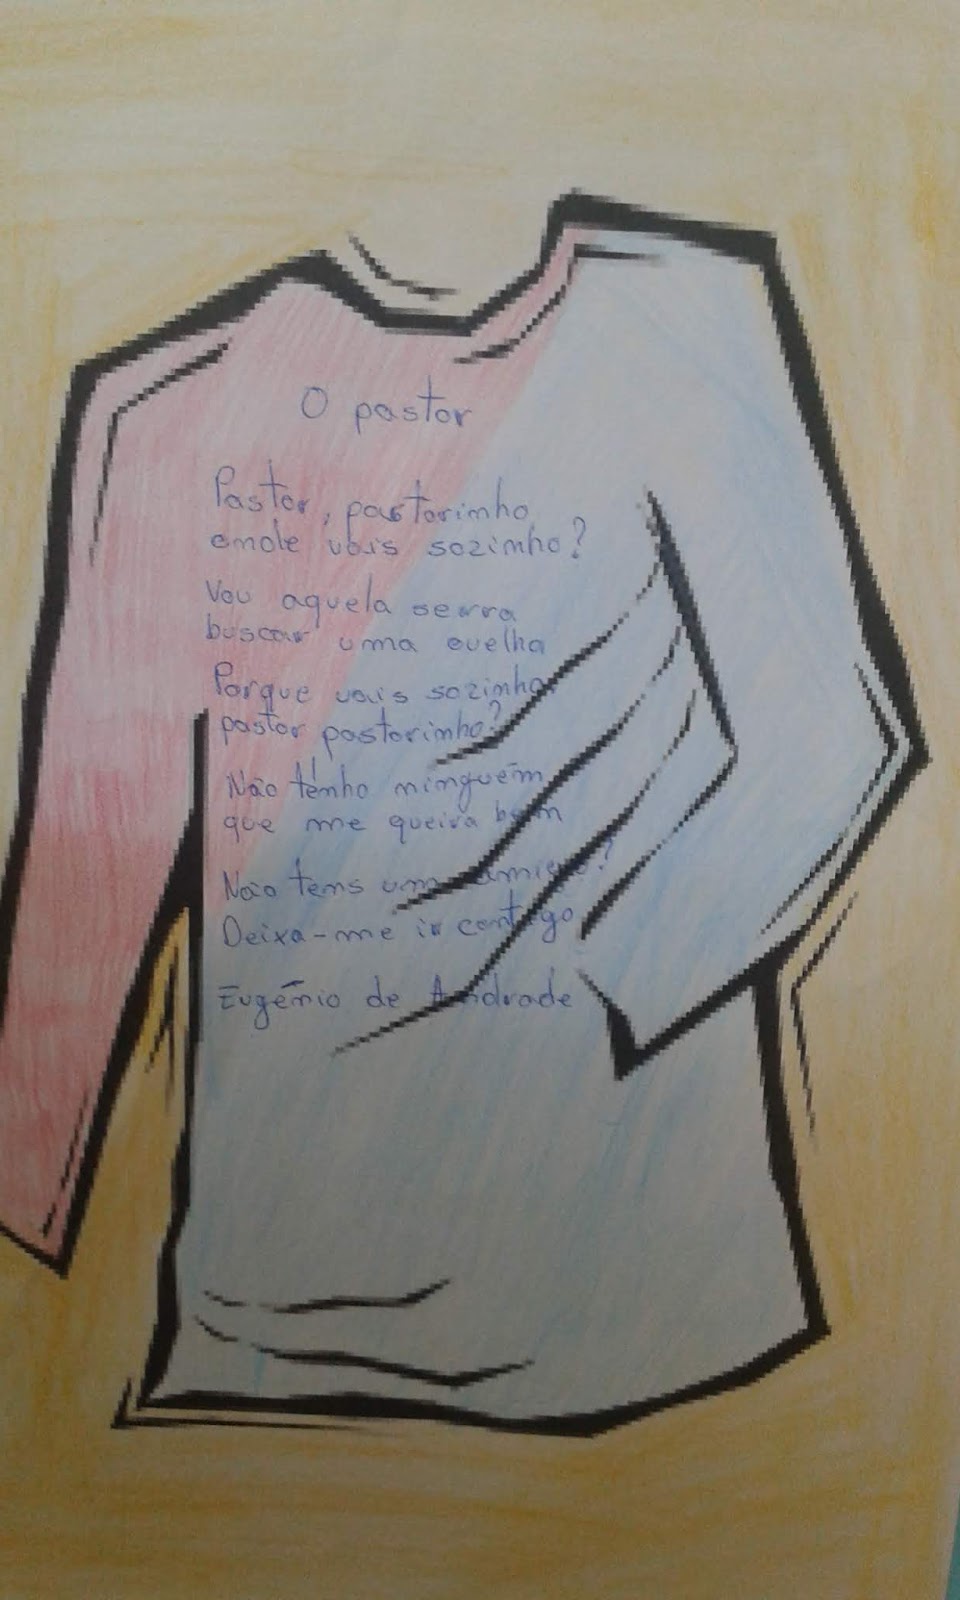 O pastor
Pastor, pastorinho,
onde vais sozinho?
Vou aquela serra
buscar uma ovelha
Porque vais sozinho
pastor pastorinho?
Não tenho ninguém
que me queira bem
Não tens um amigo?
Deixa-me ir contigo
Eugénio de Andrade